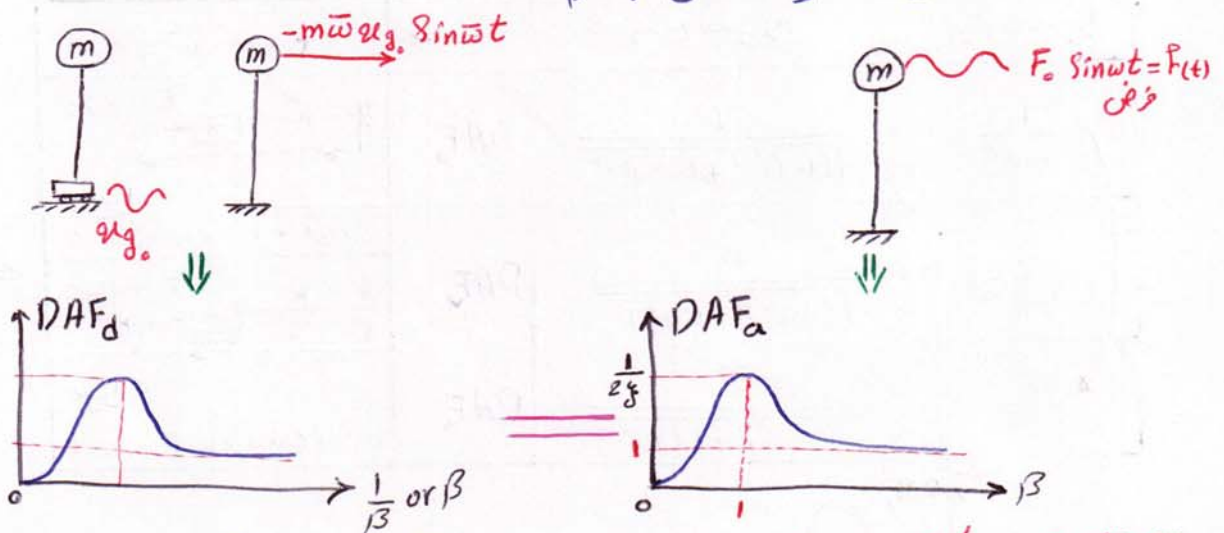 m
m
-mω̅ u_g₀ Sin ω̅t
m
F₀ Sin ω̅t = F(t)
فرض
u_g₀
DAF_d
0
1/β or β
=
DAF_a
1/2ξ
1
0
1
β